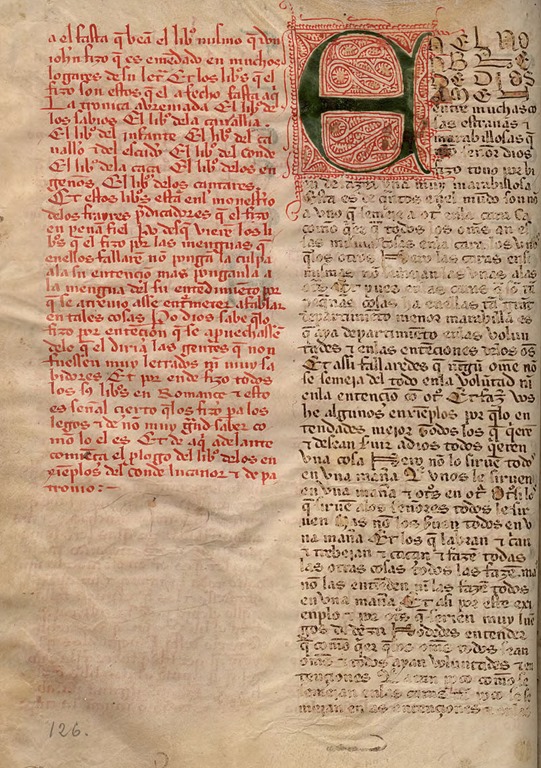 a el fasta q̃ beã el lib̃ mismo q̃ don
iohñ fizo q̃ es emẽdado en muchos
logares de su letͣ Et los libͦs q̃ el
fizo son estos q̃ el a fecho fasta aq̃
La cronica abreuiada El libͦ de
los sabios El libͦ dela caualłia
El libͦ del infante El libͦ del ca
uallͦo τ del escudͦo El libͦ del conde
El libͦ dela caça El libͦ delos en
geños El libͦ delos cantares
Et estos libͦs estã enl monestͦio
delos frayres p̃dicadores q̃ el fizo
en peñafiel po desq̃ vierẽ los li
bͦs q̃ el fizo por las menguas q̃
enellos fallarẽ nõ pongã la culpa
ala su entẽcio mas ponganla a
la mengua del su entẽdimiẽto por
q̃ se atreuio asse entͦmeter a fablar
en tales cosas Po dios sabe q̃lo
fizo por entẽciõn q̃ se apuechassẽ
delo q̃ el diria las gentes q̃ non
fuessẽn muy letrados nĩ muy sa
bidores Et por ende fizo todos
los libͦs en Romançe τ esto
es señal cierto q̃los fizo pa los
legos τ de nõ muy gͣnd saber co
mo lo el es Et de aq̃ adelante
comiẽça el plogo del libͦ delos en
xienplos del conde lucanor τ de pa
tronio
EN EL NO
entre muchas co
sas estrañas τ
marabillosas q̃
señor dios
fizo touo por bi
vna muy marabillosa
esta es de q̃ntos
a vno q̃ semeje a otͦ en la cara Ca
como q̃er q̃ todos los oms̃ an
las cosas en la cara los vnos
q̃los otros Pero las caras en si
mismas nõ semejan las vnas alas
otͣs Et pues en las caras q̃ sõ tã
pequeñas cosas ha enellas tã gͣnt
departimiẽto menor marabilla es
q̃ aya departimiẽto enlas volun
tades τ enlas entẽciones delos oms̃
Et asi fallaredes q̃ nĩgũ ome nõ
se semeja del todo enla volũtad nĩ
enla entenciõ cõ otͦ Et faz vos
he algunos enxienplos por q̃lo en
tendades mejor Todos los q̃ q̃ere
τ desean suir a dios todos q̃eren
vna cosa Pero nõ lo siruẽ todos
en vna manͣa Q̃ vnos le siruen
en vna manͣa τ otͦs en otͣ Otsi los
q̃ siruẽ alos señores todos le sir
uen mas nõ los siruen todos en v
na manͣa Et los q̃ labran τ crian
τ trebejan τ caçan τ fazẽ todas
las otras cosas todos las fazẽ ma
nõ las entiẽden nĩ las fazẽ todos
en vna manͣa Et asi por este exi
enplo τ por otͦs q̃ seriẽn muy luẽ
gos de dezir Podedes entender
q̃ como q̃er q̃ los oms̃ todos sean
oms̃ τ todos ayan voluntades τ en
tenciones q̃ a tan poco como se
semejan enlas caras tan poco se se
mejan en las entenciones τ enlas
126.